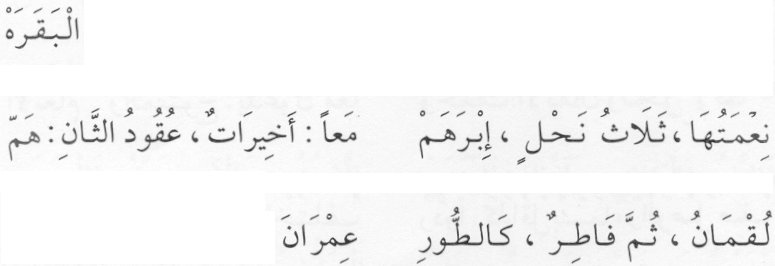 الْبَقَرَهْ
نِعْمَتُهَا، ثَلَاثُ نَحْلٍ ، إِبْرَهَمْ مَعاً : أَخِيرَاتٌ ، عُقُودُ الثَّانِ : هَمّ
لُقْمَانُ ، ثُمَّ فَاطِرٌ ، كَالطُّورِ عِمْرَانَ